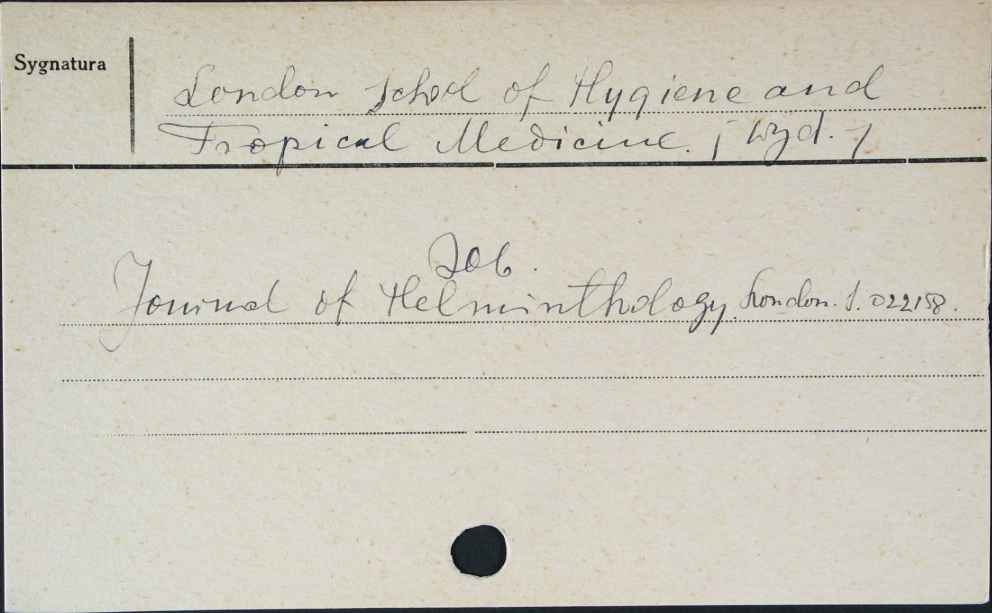 Sygnatura
London School of Hygiene and
Tropical Medicine. [wyd.]
Zob.
Journal of Helminthology. London. S. 022158.